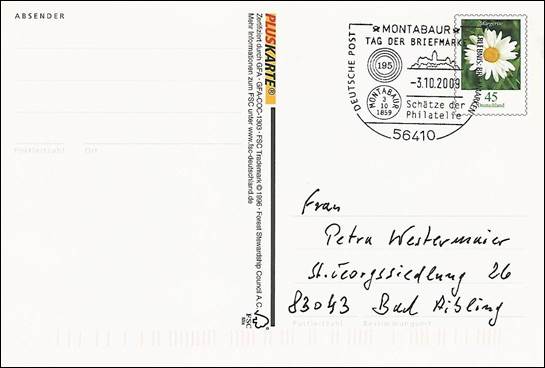 ABSENDER
Postleitzahl Ort
PLUSKARTE®
Zertifiziert durch GFA · GFA-COC-1203 · FSC Trademark © 1996 · Forest Stewardship Council A.C.
Mehr Informationen zum FSC unter www.fsc-deutschland.de
FSC
DEUTSCHE POST
MONTABAUR
TAG DER BRIEFMARKE
195
-3.10.2009
MONTABAUR
3
10
1859
Schätze der
Philatelie
ERLEBNIS: BRIEFMARKEN
56410
Margerite
45
Deutschland
Frau
Petra Westermaier
St. Georgssiedlung 26
83043 Bad Aibling
Postleitzahl Bestimmungsort